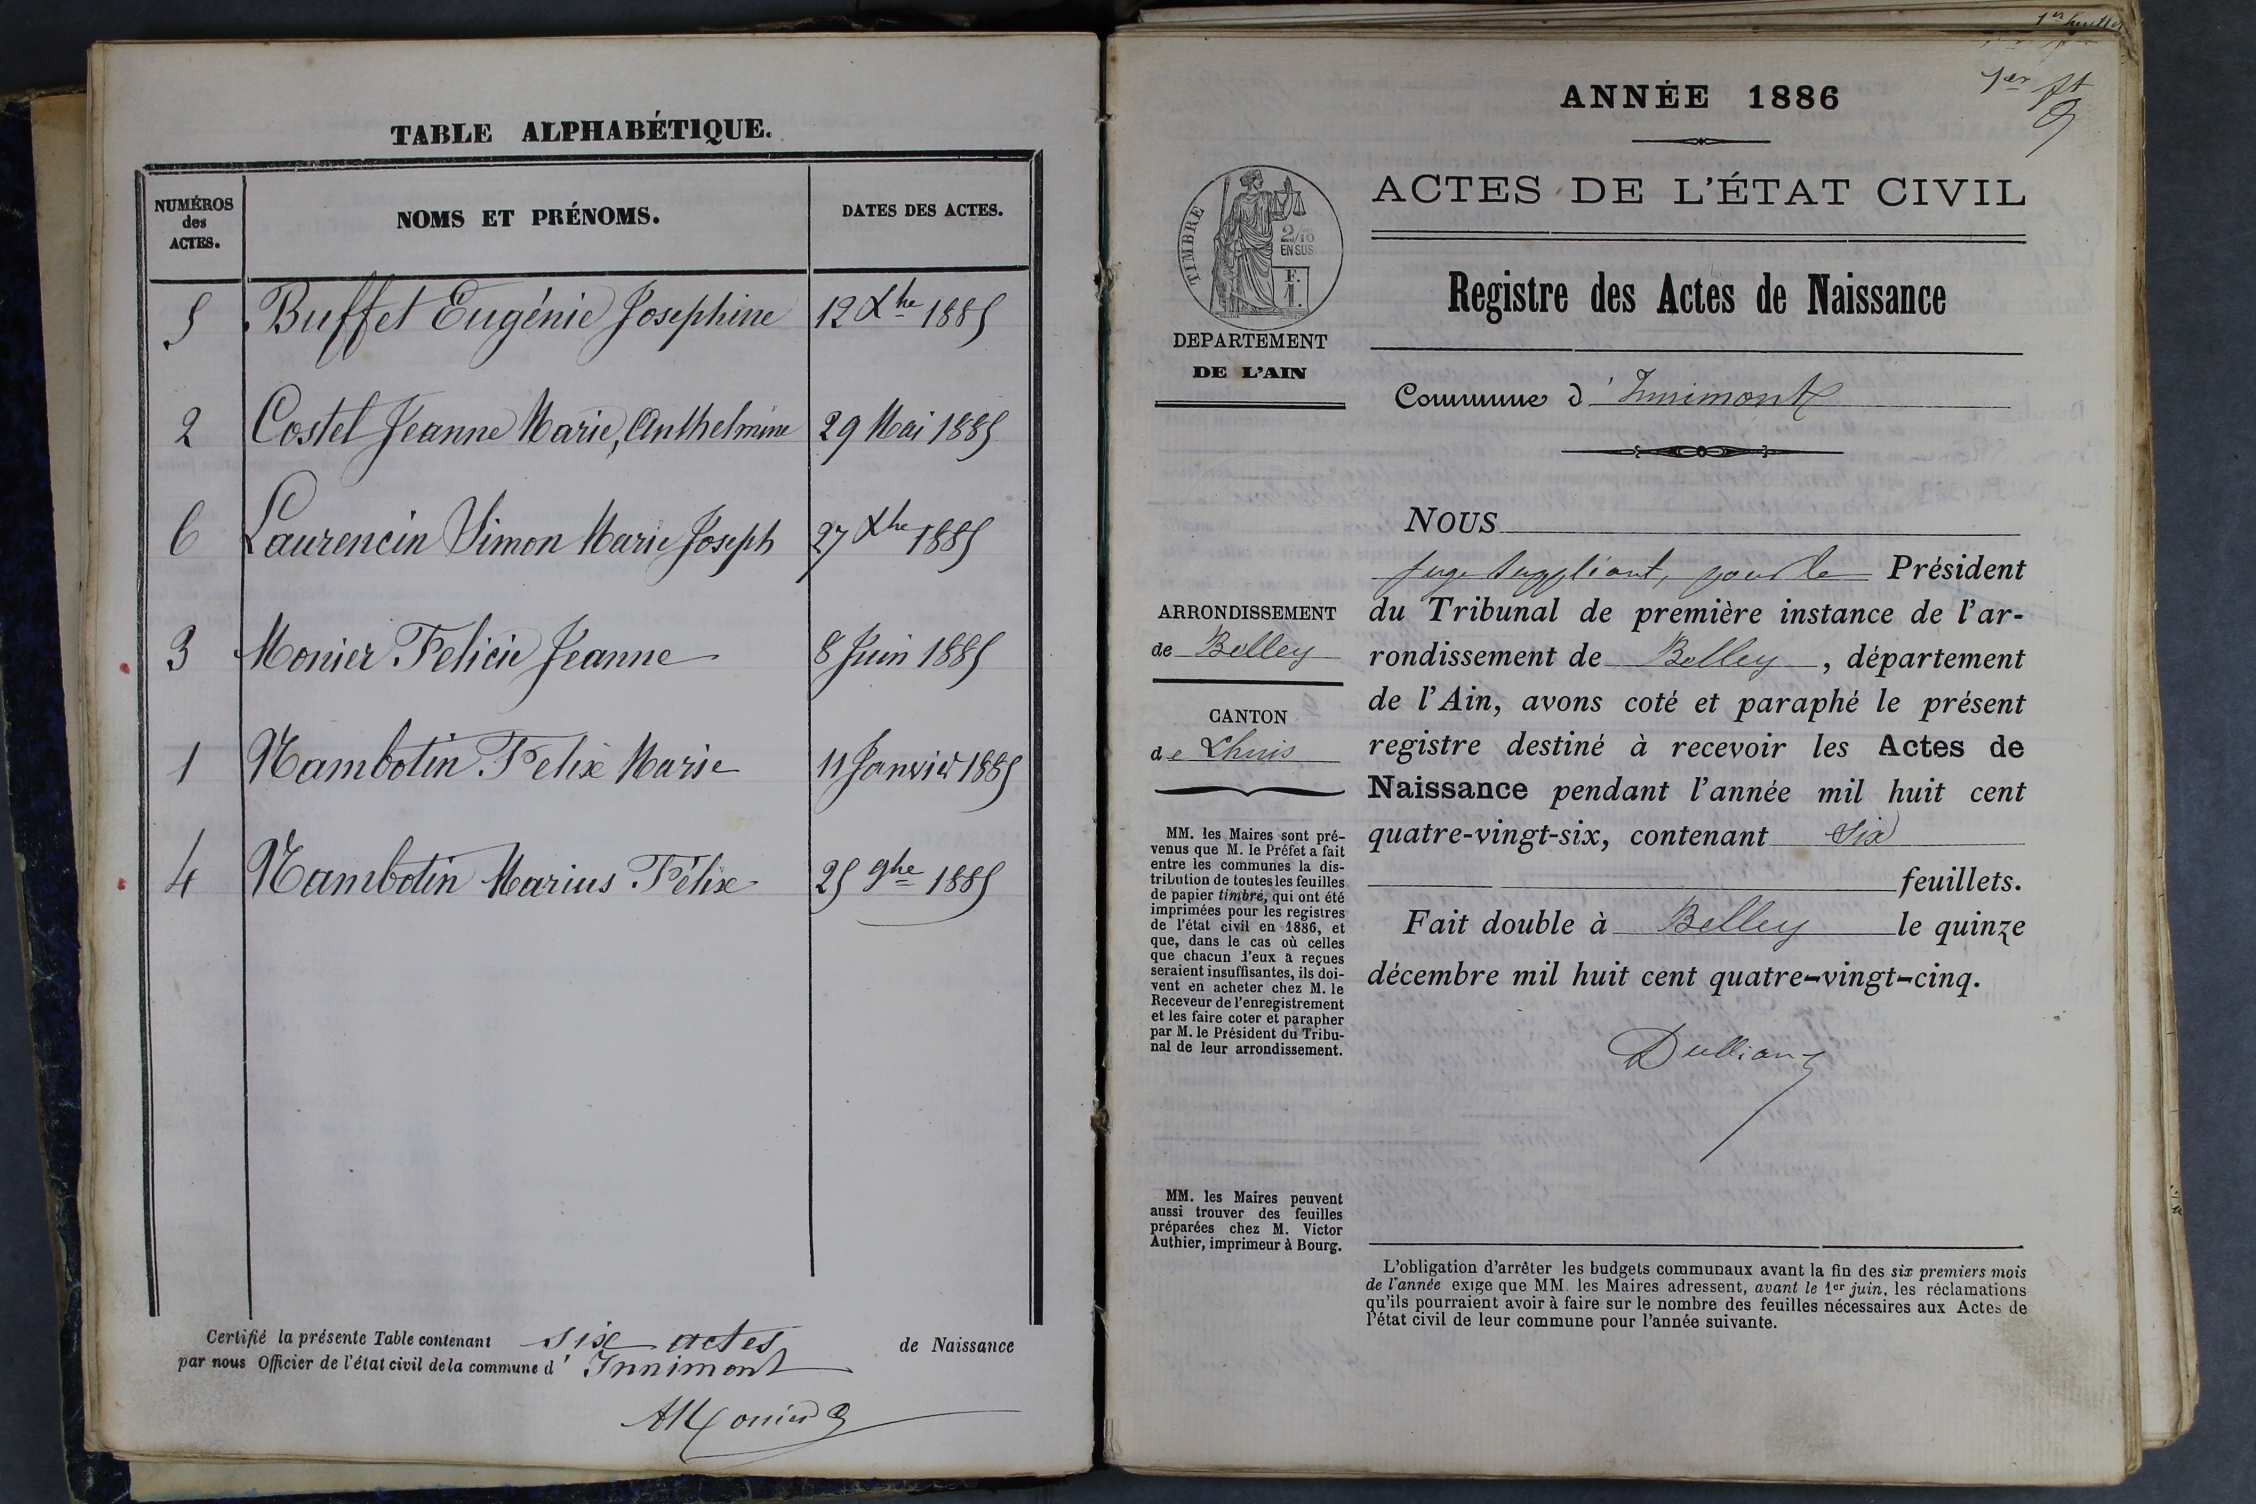 TABLE ALPHABÉTIQUE.
NUMÉROS des ACTES. NOMS ET PRÉNOMS. DATES DES ACTES.
5 Buffet Eugénie Josephine 12 Xbre 1885
2 Costel Jeanne Marie, Anthelmine 29 Mai 1885
6 Laurencin Simon Marie Joseph 27 Xbre 1885
3 Monier Felicie Jeanne 8 Juin 1885
1 Nambotin Felix Marie 11 Janvier 1885
4 Nambotin Marius Félix 25 9bre 1885
Certifié la présente Table contenant six actes de Naissance
par nous Officier de l'état civil de la commune d' Innimont
AMonier
1er feuillet
1er ft
ANNÉE 1886
ACTES DE L'ÉTAT CIVIL
TIMBRE
2/10
EN SUS
F.
1.
Registre des Actes de Naissance
DEPARTEMENT
DE L'AIN
Commune d' Innimont
NOUS
juge suppléant, pour le Président
du Tribunal de première instance de l'ar-
rondissement de Belley, département
de l'Ain, avons coté et paraphé le présent
registre destiné à recevoir les Actes de
Naissance pendant l'année mil huit cent
quatre-vingt-six, contenant six
feuillets.
Fait double à Belley le quinze
décembre mil huit cent quatre-vingt-cinq.
ARRONDISSEMENT
de Belley
CANTON
de Lhuis
MM. les Maires sont pré-
venus que M. le Préfet a fait
entre les communes la dis-
tribution de toutes les feuilles
de papier timbré, qui ont été
imprimées pour les registres
de l'état civil en 1886, et
que, dans le cas où celles
que chacun d'eux a reçues
seraient insuffisantes, ils doi-
vent en acheter chez M. le
Receveur de l'enregistrement
et les faire coter et parapher
par M. le Président du Tribu-
nal de leur arrondissement.
MM. les Maires peuvent
aussi trouver des feuilles
préparées chez M. Victor
Authier, imprimeur à Bourg.
L'obligation d'arrêter les budgets communaux avant la fin des six premiers mois
de l'année exige que MM. les Maires adressent, avant le 1er juin, les réclamations
qu'ils pourraient avoir à faire sur le nombre des feuilles nécessaires aux Actes de
l'état civil de leur commune pour l'année suivante.